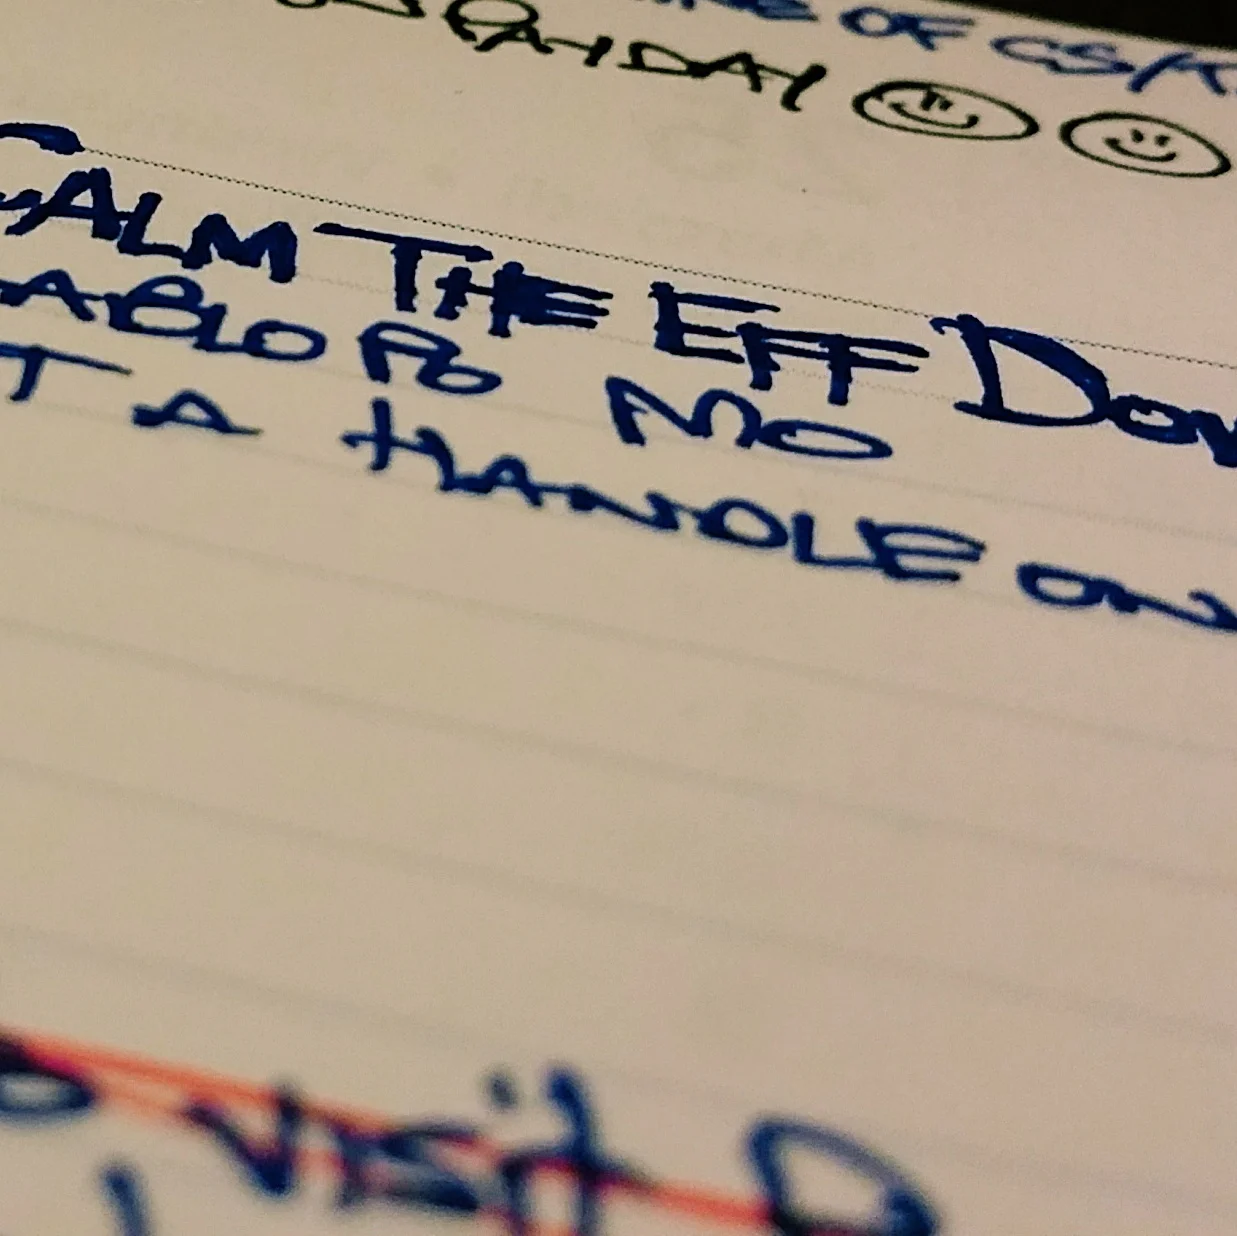 OF CS/K
PAYDAY
CALM THE EFF DOW
ABLO PO MO
T A HANDLE ON
VISIT D